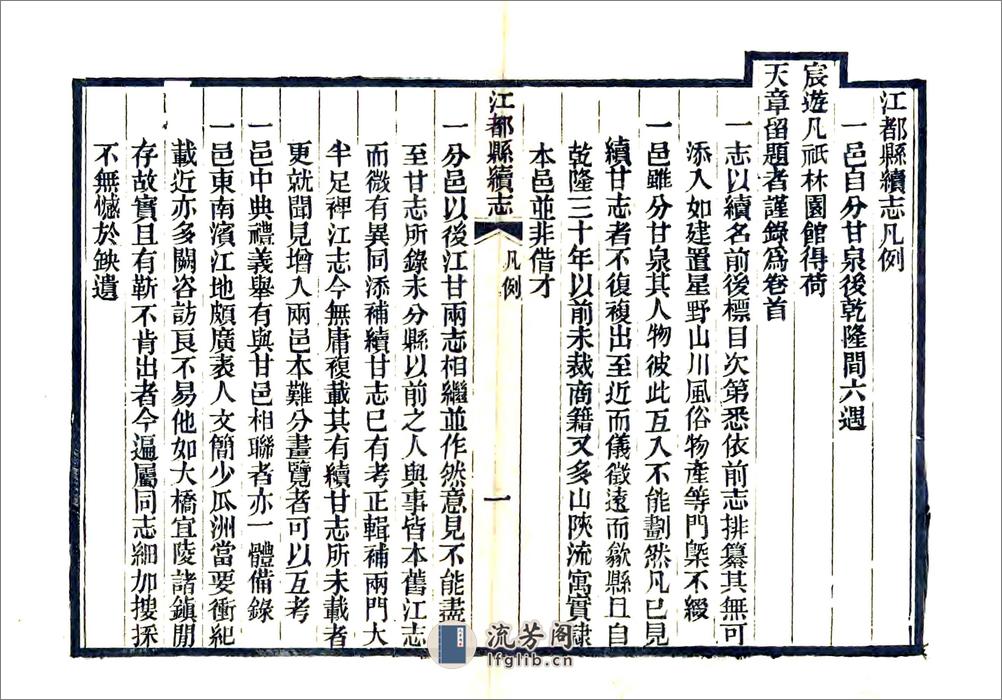 江都縣續志凡例
一邑自分甘泉後乾隆間六遇
宸遊凡祇林園館得荷
天章留題者謹錄為卷首
一志以續名前後標目次第悉依前志排纂其無可
添入如建置星野山川風俗物產等門槩不綴
一邑雖分甘泉其人物彼此互入不能劃然凡已見
續甘志者不復複出至近而儀徵遠而歙縣且自
乾隆三十年以前未裁商籍又多山陝流寓實隸
本邑並非借才
江都縣續志
凡例
一
一分邑以後江甘兩志相繼並作然意見不能盡
至甘志所錄未分縣以前之人與事皆本舊江志
而微有異同添補續甘志已有考正輯補兩門大
半足裨江志今無庸複載其有續甘志所未載者
更就聞見增入兩邑本難分畫覽者可以互考
一邑中典禮義舉有與甘邑相聯者亦一體備錄
一邑東南濱江地頗廣袤人文簡少瓜洲當要衝紀
載近亦多闕咨訪良不易他如大橋宜陵諸鎮閒
存故實且有靳不肯出者今遍屬同志細加搜採
不無憾於鉠遺
流芳阁
lfglib.cn